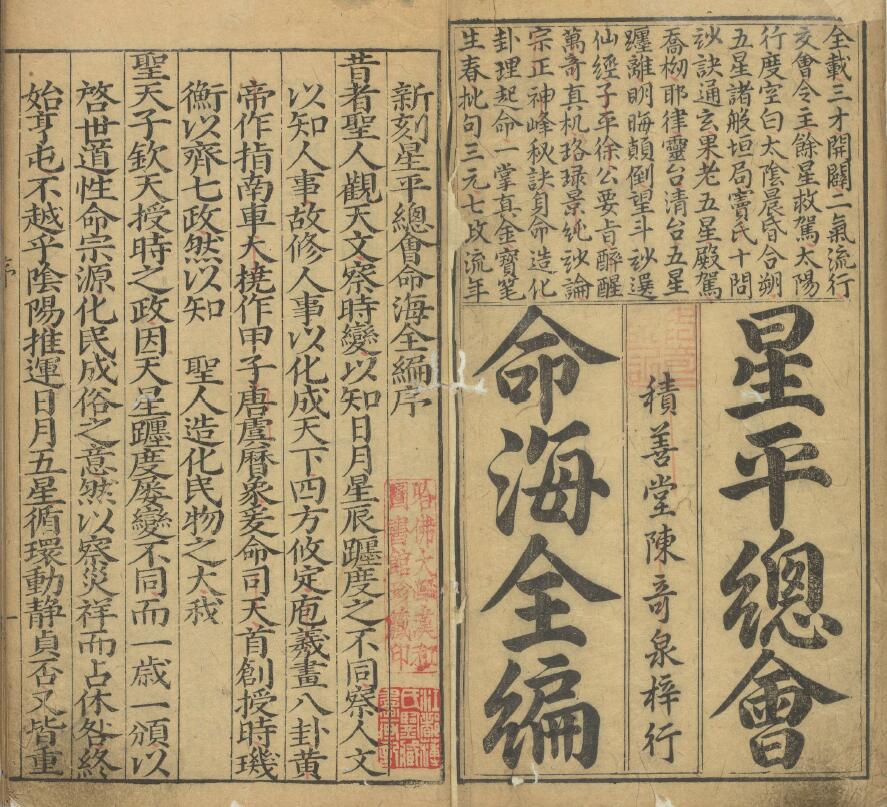 全載三才開闢二氣流行
交會令主餘星救駕太陽
行度空白太陰晨昏合朔
五星諸般垣局竇氏十問
玅訣通玄果老五星殿駕
喬拗耶律靈台清台五星
躔離明晦顛倒望斗玅選
仙經子平徐公要旨醉醒
萬奇真机珞琭景純玅論
宗正神峰秋訣身命造化
卦理起命一掌真金寶筆
生春批句三元七政流年
星平總會
積善堂陳奇泉梓行
命海全編
新刻星平總會命海全編序
昔者聖人觀天文察時變以知日月星辰躔度之不同察人文
以知人事故修人事以化成天下四方攸定庖羲畫八卦黃
帝作指南車大撓作甲子唐虞曆象爰命司天首創授時璣
衡以齊七政然以知 聖人造化民物之大哉
聖天子欽天授時之政因天星躔度屡變不同而一歲一頒以
啓世道性命宗源化民成俗之意然以察災祥而占休咎終
始亨屯不越乎陰陽推運日月五星循環動靜貞否又皆重
序
一
哈佛大學漢和
圖書館珍藏印